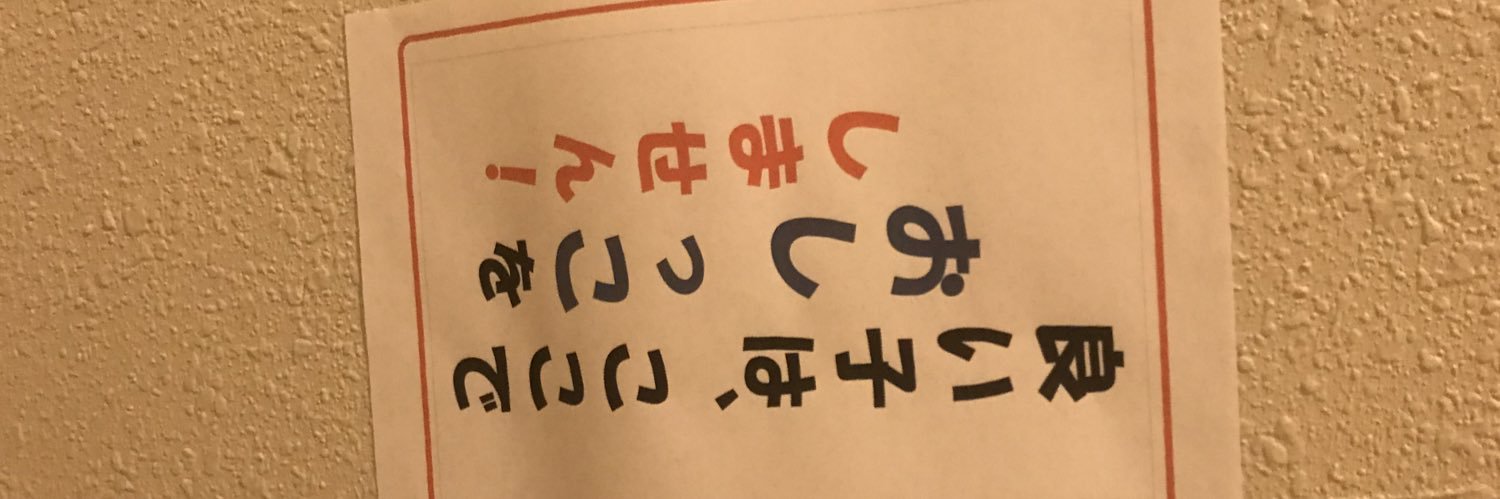 良い子は、ここで
おしっこを
しません!